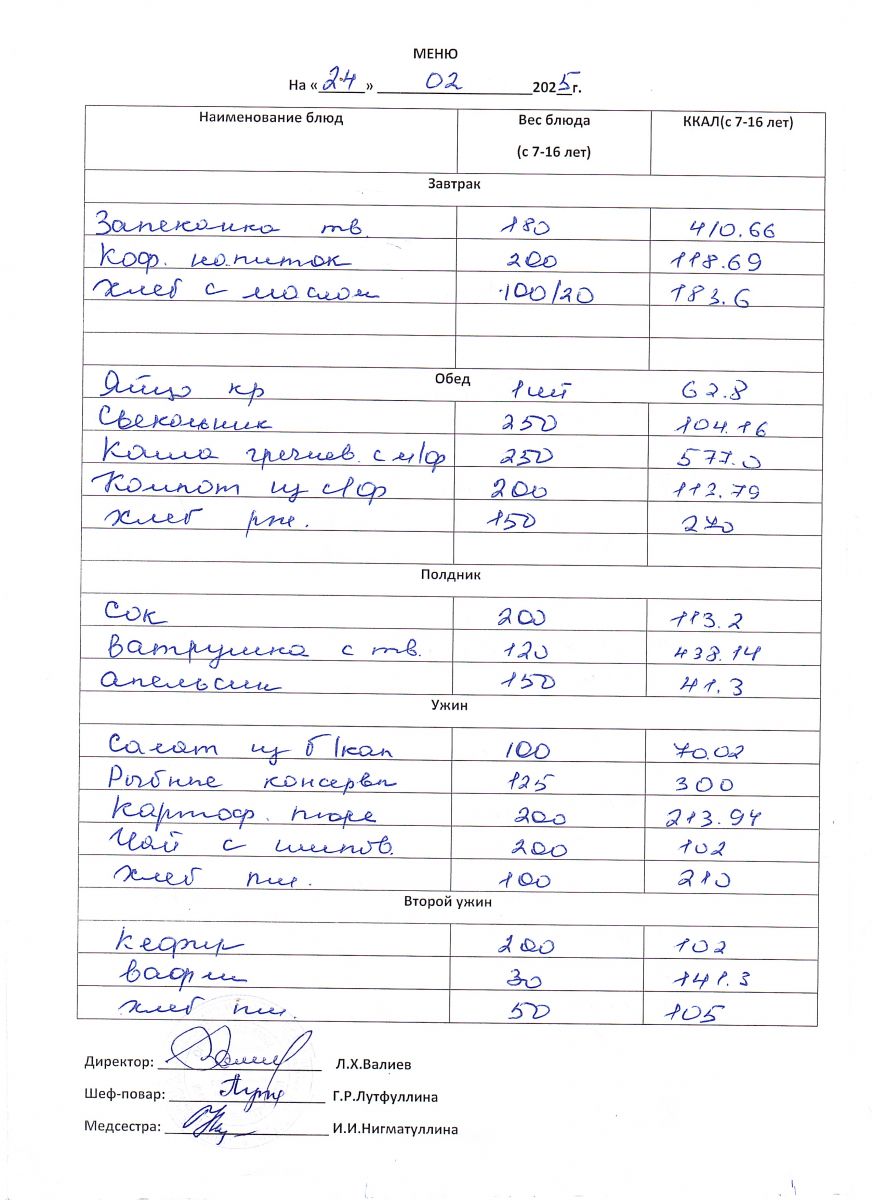 МЕНЮ
На «24» 02 2025г.
Наименование блюд Вес блюда (с 7-16 лет) ККАЛ(с 7-16 лет)
Завтрак
Запеканка тв. 180 410.66
Коф. напиток 200 118.69
Хлеб с маслом 100/20 183.6
Обед
Яйцо кр 1шт 62.8
Свекольник 250 104.16
Каша гречнев. с м/ф 250 577.0
Компот из с/ф 200 113.79
Хлеб рж. 150 270
Полдник
Сок 200 113.2
Ватрушка с тв. 120 438.14
апельсин 150 41.3
Ужин
Салат из б/кап 100 70.02
Рыбные консервы 125 300
Картоф. пюре 200 213.94
Чай с шипов. 200 102
Хлеб пш. 100 210
Второй ужин
Кефир 200 102
вафли 30 141.3
Хлеб пш. 50 105
Директор: Л.Х.Валиев
Шеф-повар: Г.Р.Лутфуллина
Медсестра: И.И.Нигматуллина